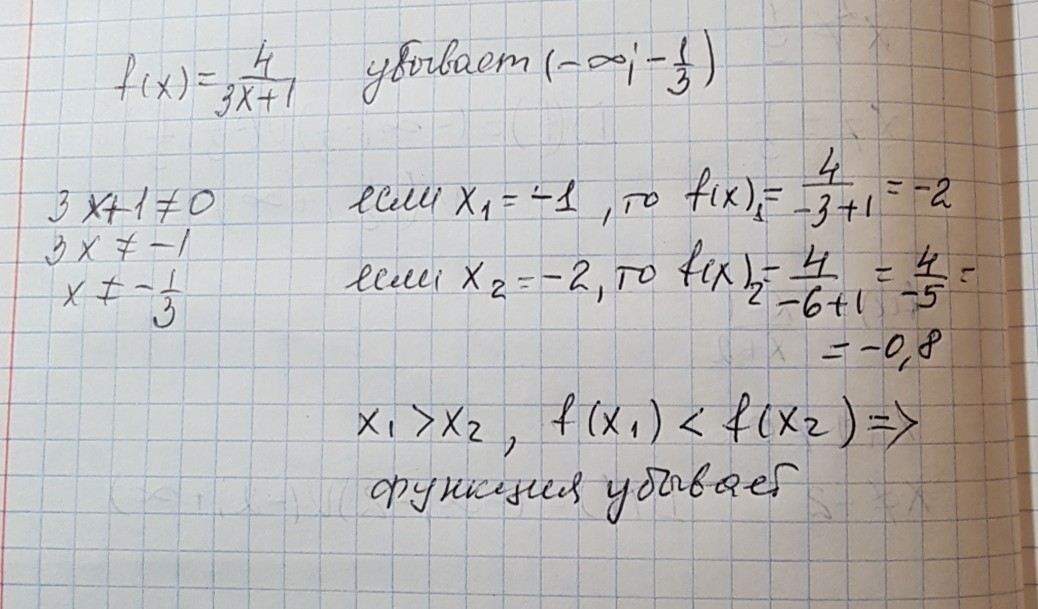 f(x) = 4/(3x+1) убывает (-∞; -1/3)
3x+1≠0 если x₁ = -1, то f(x)₁ = 4/(-3+1) = -2
3x ≠ -1
x ≠ -1/3 если x₂ = -2, то f(x)₂ = 4/(-6+1) = 4/(-5) =
= -0,8
x₁ > x₂, f(x₁) < f(x₂) =>
функция убывает